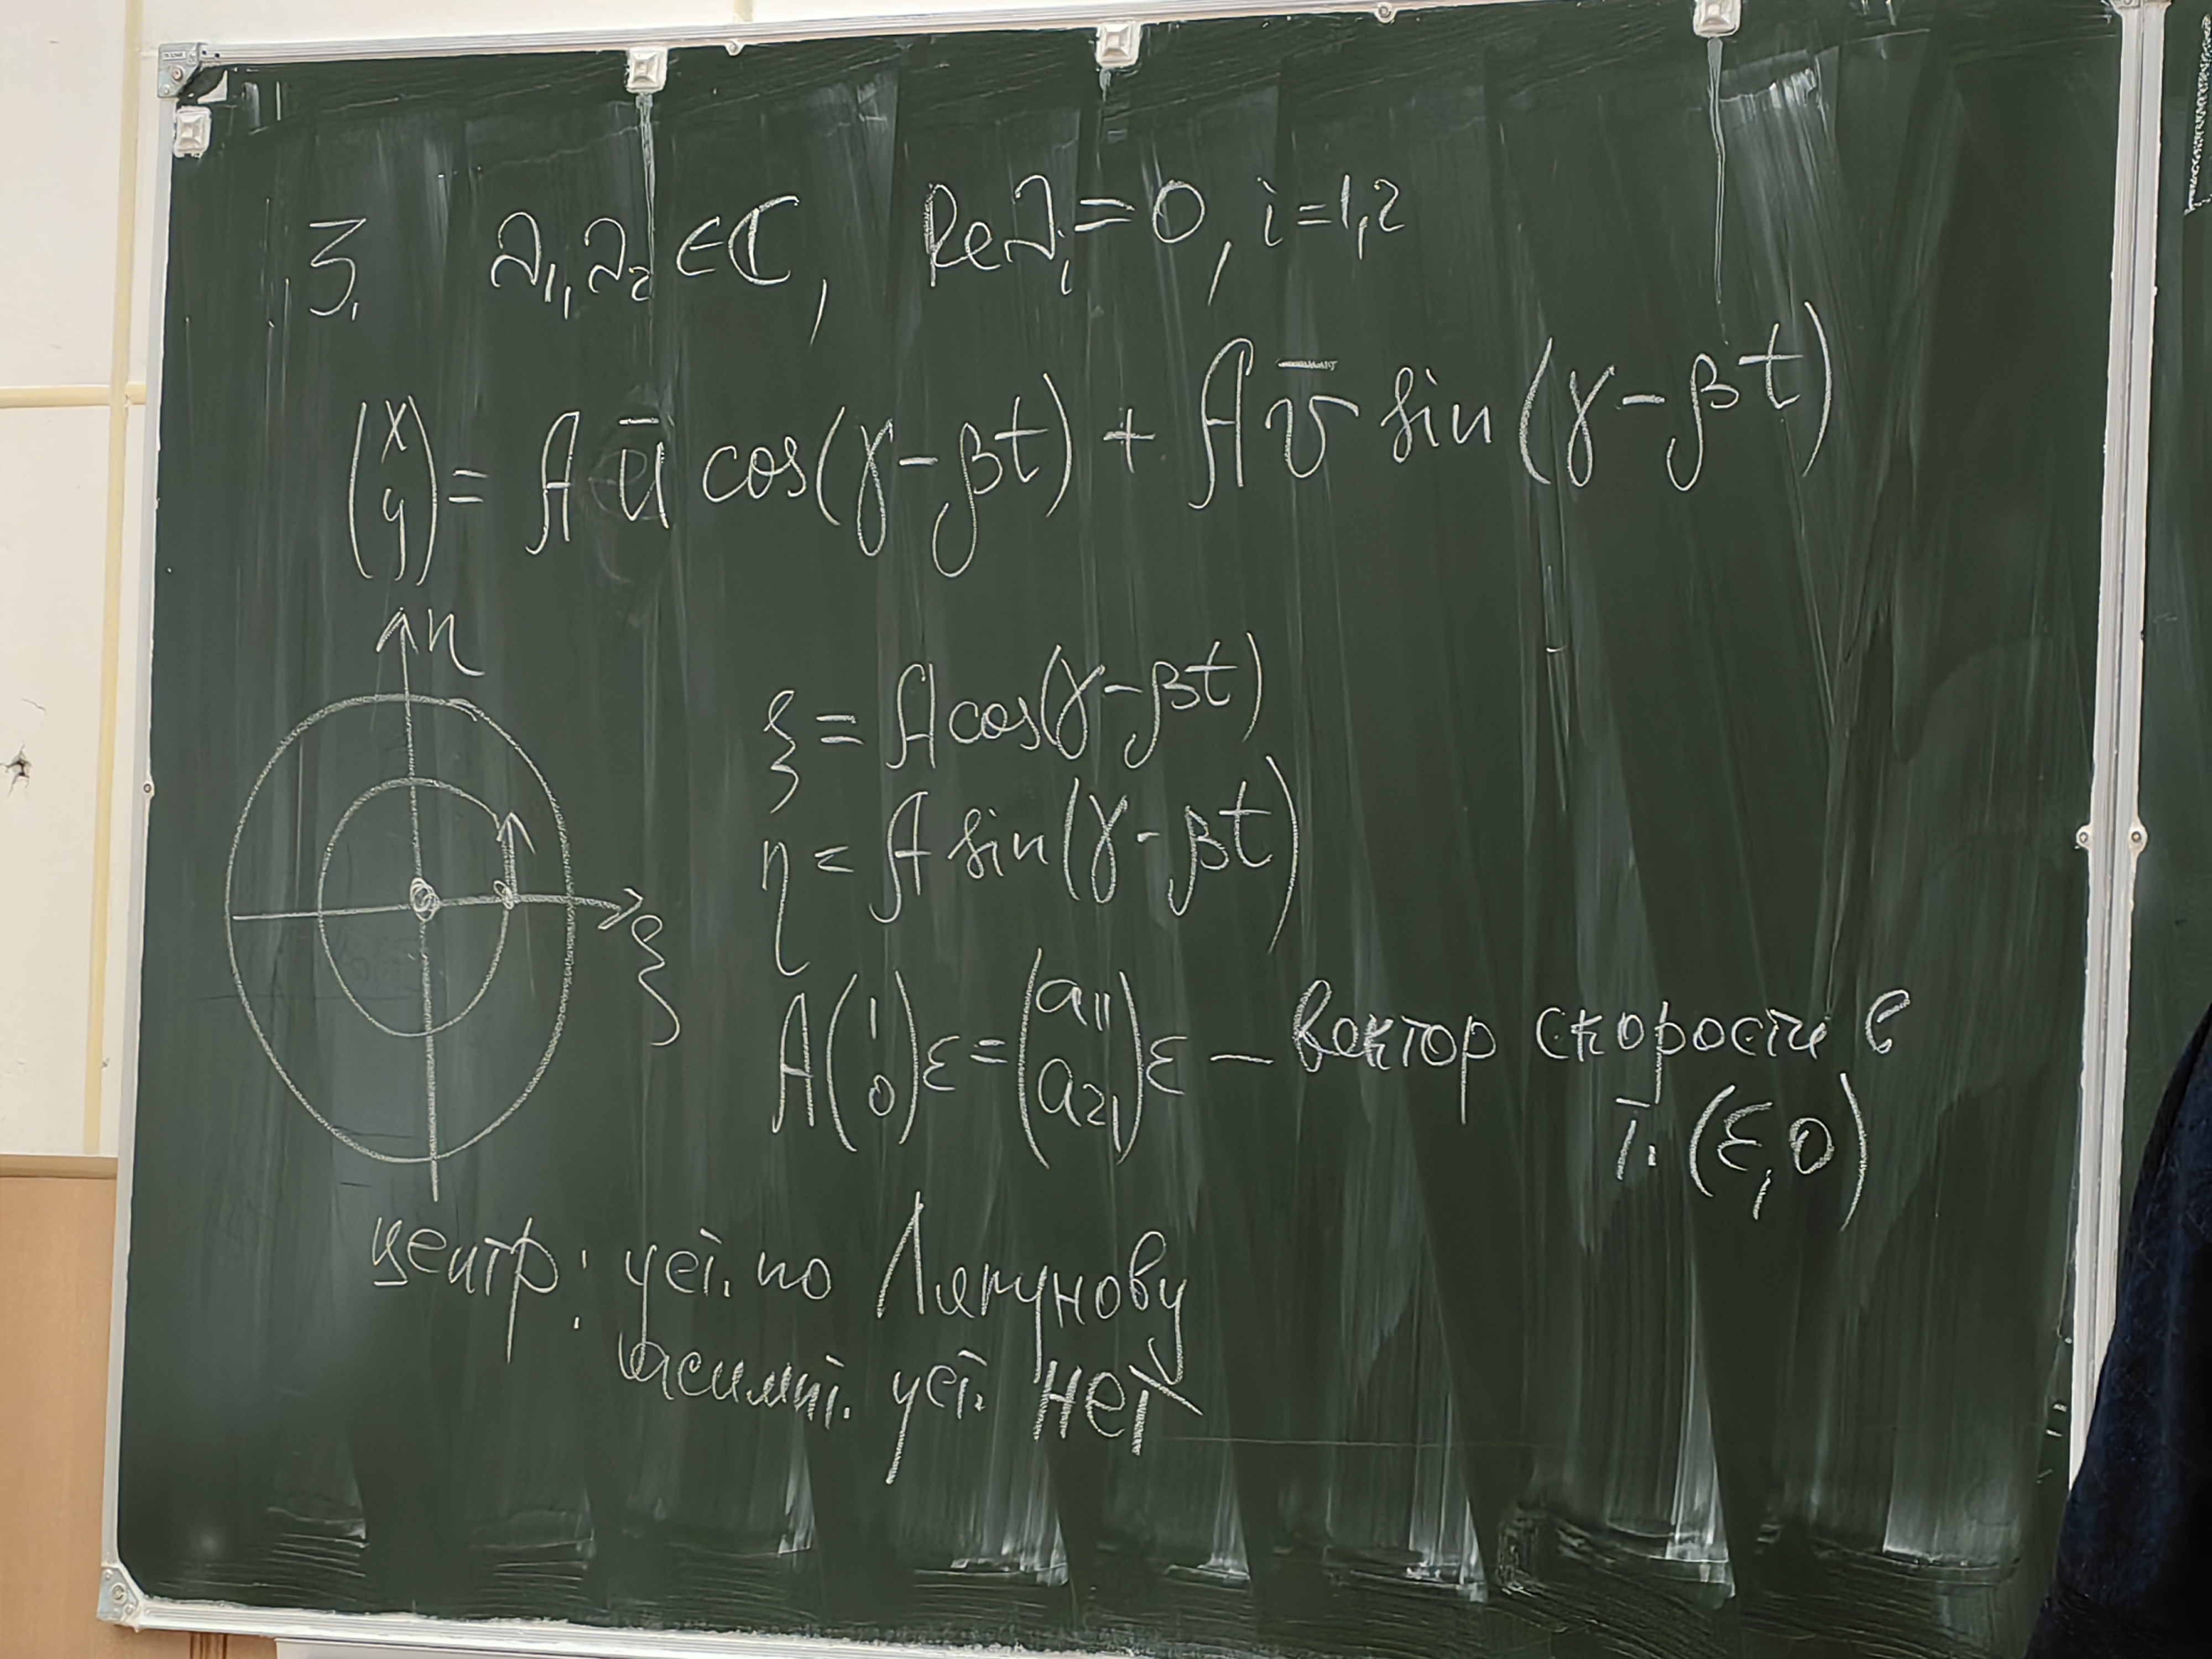 3. λ₁, λ₂ ∈ ℂ, Re λᵢ = 0, i = 1,2
(x y) = A ū cos(γ − βt) + A v̄ sin(γ − βt)
η
ξ = A cos(γ − βt)
η = A sin(γ − βt)
ξ
A(1 0)ε = (a₁₁ a₂₁)ε — вектор скорости в
т. (ε, 0)
центр: уст. по Ляпунову
асимпт. уст. нет